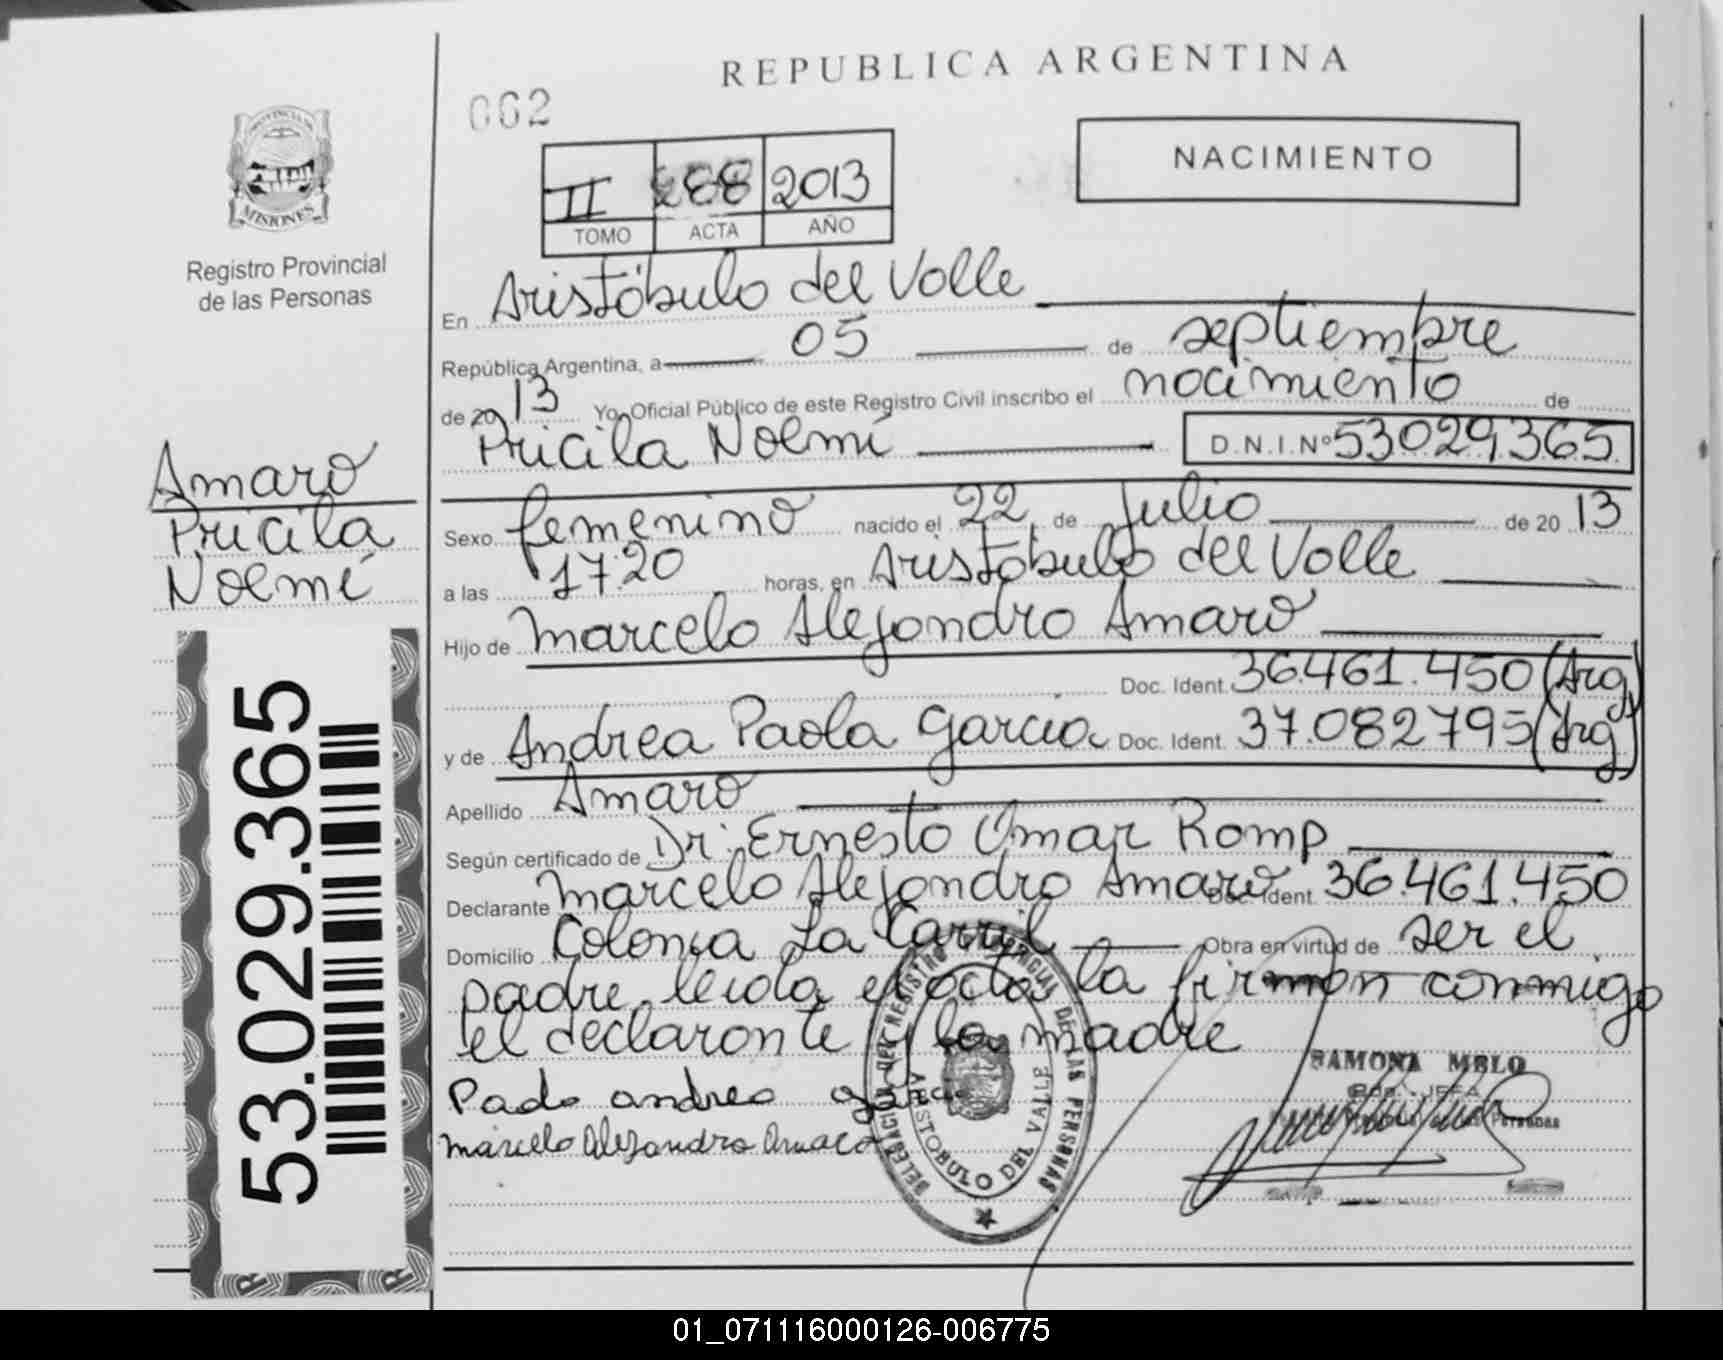 REPUBLICA ARGENTINA
062
NACIMIENTO
II 288 2013
TOMO ACTA AÑO
PROVINCIA DE
MISIONES
Registro Provincial
de las Personas
En Aristóbulo del Valle
República Argentina, a 05 de septiembre
de 2013 Yo, Oficial Público de este Registro Civil inscribo el nacimiento de
Pricila Noemí D.N.I.Nº 53029365
Amaro
Pricila
Noemí
Sexo femenino nacido el 22 de Julio de 20 13
a las 17:20 horas, en Aristóbulo del Valle
Hijo de Marcelo Alejandro Amaro
Doc. Ident. 36.461.450 (Arg)
y de Andrea Paola Garcia Doc. Ident. 37.082795 (Arg)
Apellido Amaro
Según certificado de Dr. Ernesto Omar Romp
Declarante Marcelo Alejandro Amaro Doc. Ident 36.461.450
Domicilio Colonia La Carril Obra en virtud de ser el
padre, leida el acta la firman conmigo
el declarante y la madre
Paola andrea garcia
marcelo Alejandro Amaro
DELEGACION DEL REGISTRO PROVINCIAL DE LAS PERSONAS
ARISTOBULO DEL VALLE
RAMONA MELO
JEFA
Personas
53.029.365
01_071116000126-006775